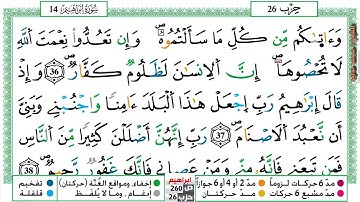 حِزْب 26 سُورَةُ إِبْرَاهِيمَ 14
وَءَاتٜيٰكُم مِّن كُلِّ مَا سَأَلْتُمُوهُ وَإِن تَعُدُّواْ نِعْمَتَ اَللَّهِ
لَا تُحْصُوهَا إِنَّ اَلْإِنسَٰنَ لَظَلُومٞ كَفَّارٞ 36 وَإِذْ
قَالَ إِبْرَٰهِيمُ رَبِّ اِجْعَلْ هَٰذَا اَلْبَلَدَ ءَامِنٗا وَاجْنُبْنِے وَبَنِيَّ
أَن نَّعْبُدَ اَلْأَصْنَامَ 37 رَبِّ إِنَّهُنَّ أَضْلَلْنَ كَثِيرٗا مِّنَ اَلنَّاسِ
فَمَن تَبِعَنِے فَإِنَّهُۥ مِنِّے وَمَنْ عَصَانِے فَإِنَّكَ غَفُورٞ رَّحِيمٞ 38
مدّ 6 حركات لزوماً مدّ 2 أو 4 أو 6 جوازاً إخفاء، ومواقع الغُنَّة (حركتان) تفخيم
مدّ مشبع 6 حركات مدّ حركتان إدغام، وما لا يُلفَظ قلقلة
ابراهيم
ص 260
حزب 26